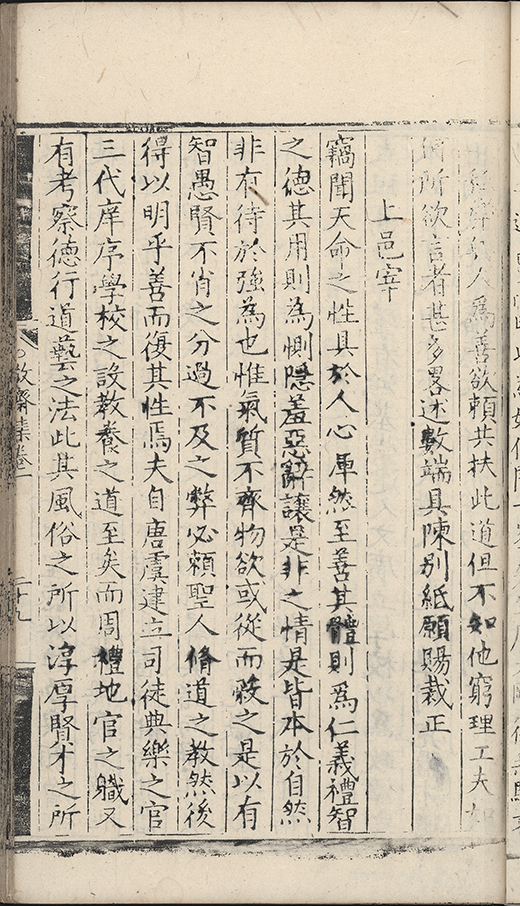 人爲善欲賴共扶此道但不知他窮理工夫如
何所欲言者甚多畧述數端具陳別紙願賜裁正
上邑宰
竊聞天命之性具於人心渾然至善其體則爲仁義禮智
之德其用則為惻隱羞惡辭讓是非之情是皆本於自然
非有待於強為也惟氣質不齊物欲或從而㱿之是以有
智愚賢不肖之分過不及之弊必賴聖人脩道之教然後
得以明乎善而復其性焉夫自唐虞建立司徒典樂之官
三代庠序學校之設教養之道至矣而周禮地官之職又
有考察德行道藝之法此其風俗之所以淳厚賢才之所
齋集卷一
二十九